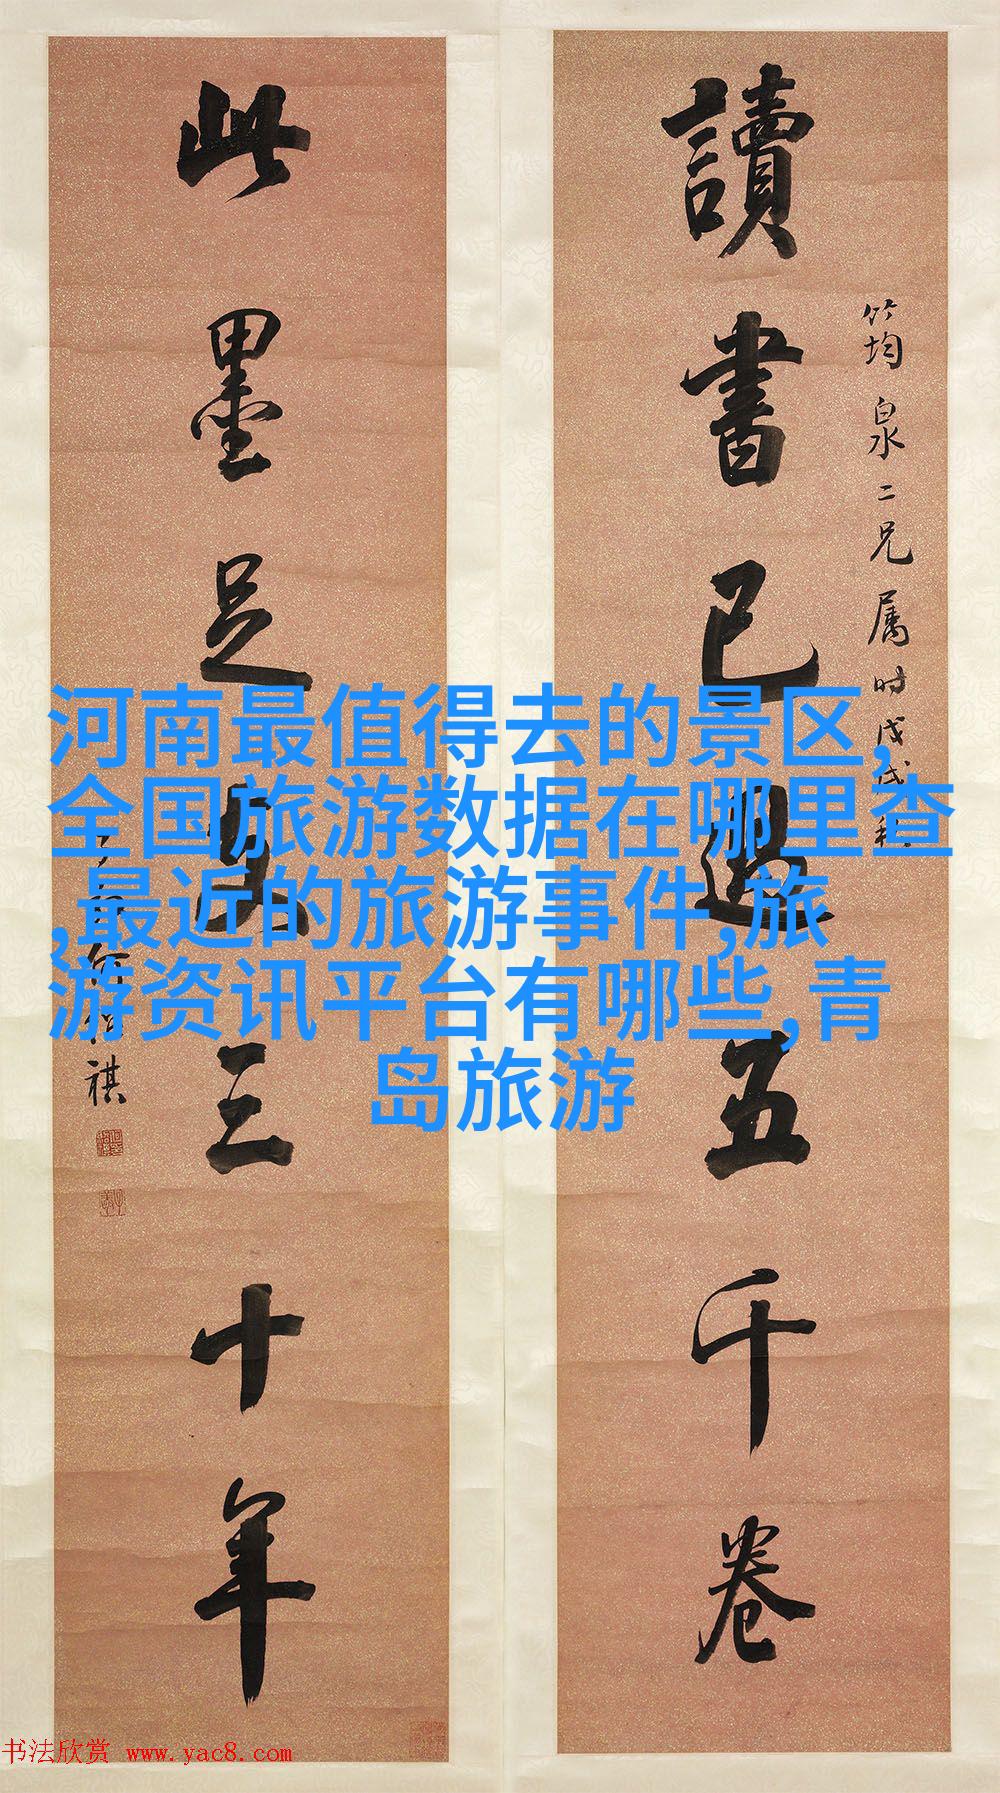 讀書已過五千卷
竹均泉二兄属时戊戌秋
此墨足支三十年
祺
河南最值得去的景区,
全国旅游数据在哪里查
,最近的旅游事件,旅
游资讯平台有哪些,青
岛旅游
书法欣赏 www.yac8.com